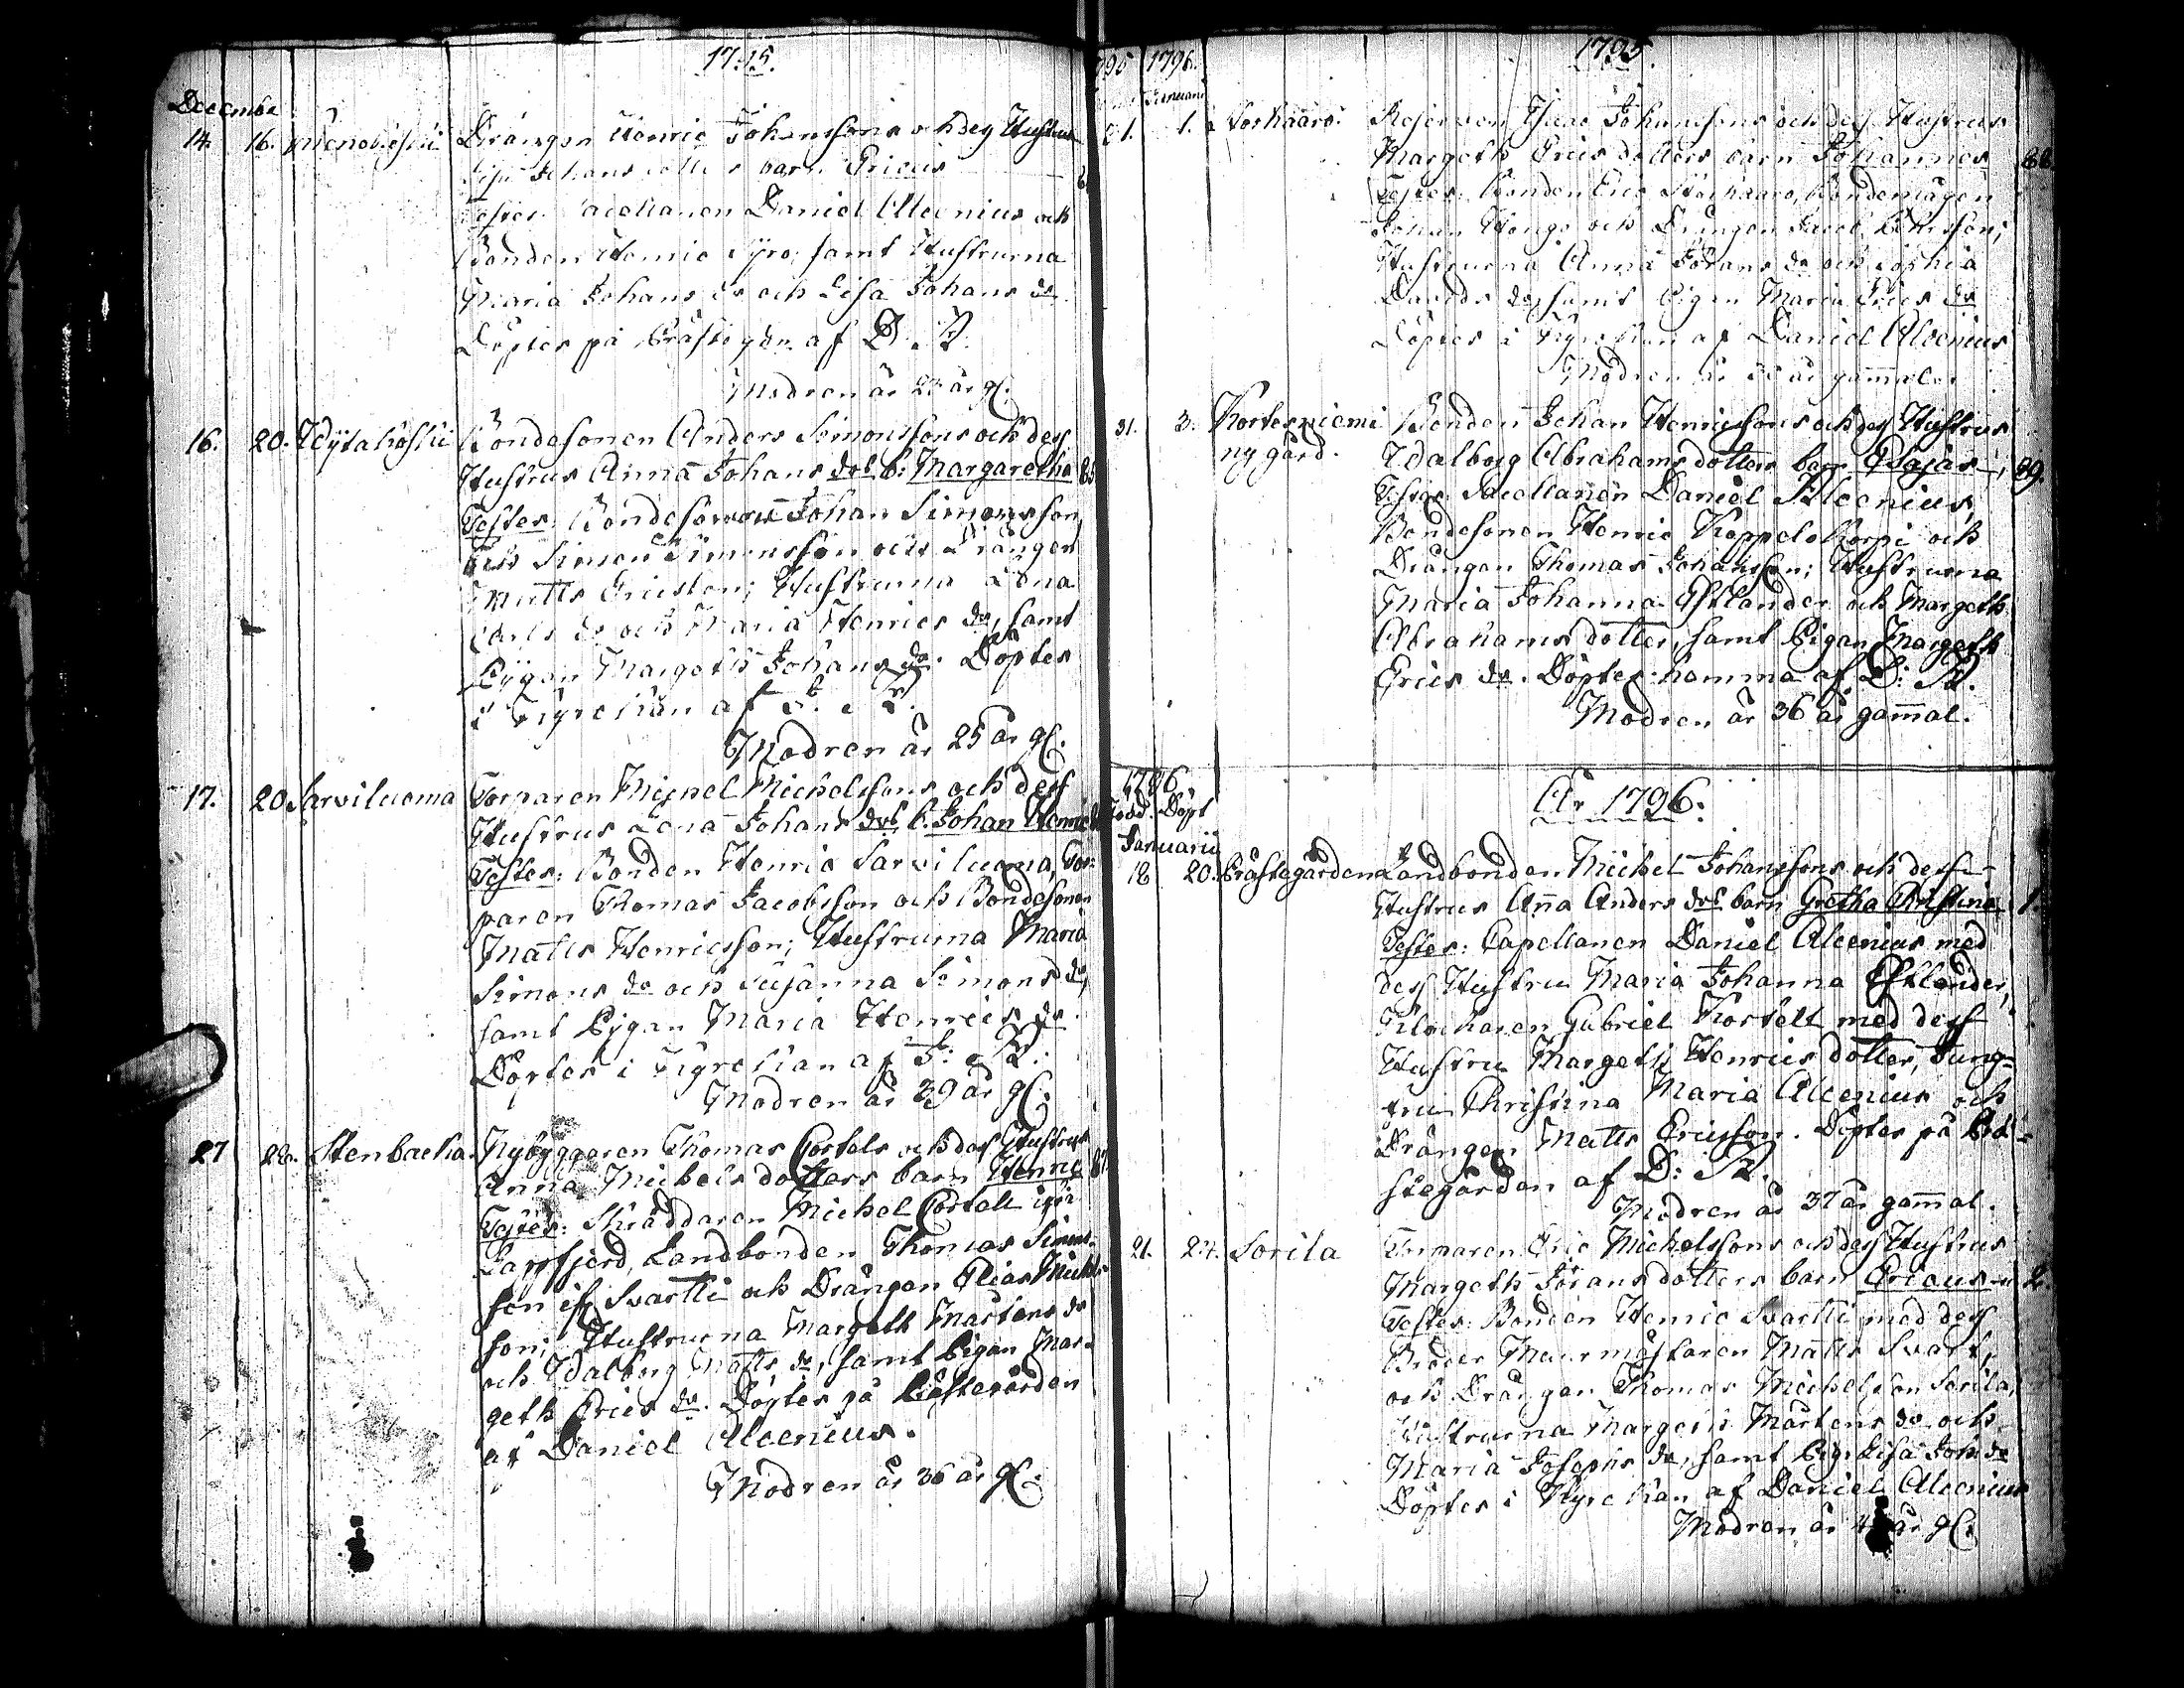 1795.
Decembr
14. 16. Drängen Henric Johanssons och deß Hustrus
Lisa Johans dotters barn Ericus
Testes: Sacellanen Daniel Alcenius och
Bonden Henric Syro, samt Hustrurna
Maria Johans dr och Lisa Johans dr
Döptes på Prästegden af D. A.
Modren är 23 år gl.
16. 20. Bondesonen Anders Simonssons och deß
Hustrus Anna Johans dotr b: Margaretha 85
Testes: Bondesonen Johan Simonsson,
Simon Simonsson och Drängen
Matts Ericsson; Hustrurna Lena
Carls dr och Maria Henrics dr, samt
Pygan Margeth Johans dr. Döptes
i Kyrckan af
Modren är 25 år gl.
17. 20 Sarviluoma Torparen Michel Michelssons och deß
Hustrus Lena Johans dotr b. Johan Henric
Testes: Bonden Henric Sarviluoma, Tor-
paren Thomas Jacobsson och Bondesonen
Matts Henricsson; Hustrurna Maria
Simons dr och Susanna Simons dr,
samt Pigan Maria Henrics dr.
Döptes i Kyrckan af
Modren är 39 år gl.
27 28. Stenbacka Nybyggaren Thomas Cortels och deß Hustrus
Anna Michels dotters barn Henric 87.
Testes: Skräddaren Michel Cortell ifrå
Lappfjerd, Landbonden Thomas Simons-
son ifr Svartti och Drängen Elias Michels-
son; Hustrurna Margeth Mårtens dr
och Walborg Matts dr, samt Pigan Mar-
geth Erics dr. Döptes på Prästegården
af Daniel Alcenius.
Modren är 36 år gl.
1795 1796. 1795.
Januari
31. 1. Storhaaro Reserven Isaac Johanssons och deß Hustrus
Margeth Erics dotters barn Johannes 88
Testes: Bonden Eric Storhaaro, Bondemågen
Johan Hongo och Drängen Jacob
Hustrurna Anna Jörans dr och Sophia
Davids dr, samt Pigan Maria Erics dr
Döptes i Kyrckan af Daniel Alcenius
Modren är år gammal
31. 3. Kortesniemi Bonden Johan Henricssons och deß Hustrus
ny gård. Walborg Abrahams dotters barn Esajas 89.
Testes: Sacellanen Daniel Alcenius,
Bondesonen Henric Koppelokorpi och
Drängen Thomas Johansson; Hustrurna
Maria Johanna Estlander och Margeth
Abrahams dotter, samt Pigan Margeth
Erics dr. Döptes hemma af D: A.
Modren är 36 år gammal.
1796 År 1796.
Född. Döpt
Januarii
18 20. Prästegården Landbonden Michel Johanssons och deß
Hustrus Anna Anders dotr barn Gretha Christina 1.
Testes: Capellanen Daniel Alcenius med
deß Hustru Maria Johanna Estlander,
Klockaren Gabriel Kortell med deß
Hustru Margeth Henrics dotter, Jung-
fru Christina Maria Alcenius och
Drängen Matts Ericsson. Döptes på Prä-
stegården af D: A.
Modren är 37 år gammal.
21. 24. Sorila Torparen Eric Michelssons och deß Hustrus
Margeth Jörans dotters barn Ericus 2.
Testes: Bonden Henric Svartti med deß
Broder Muurmästaren Matts Svart,
och Drängen Thomas Michelsson Sorila,
Hustrurna Margeth Mårtens dr och
Maria Josephs dr, samt Pig: Lisa Joh: dr
Döptes i Kyrckan af Daniel Alcenius
Modren är år gl.